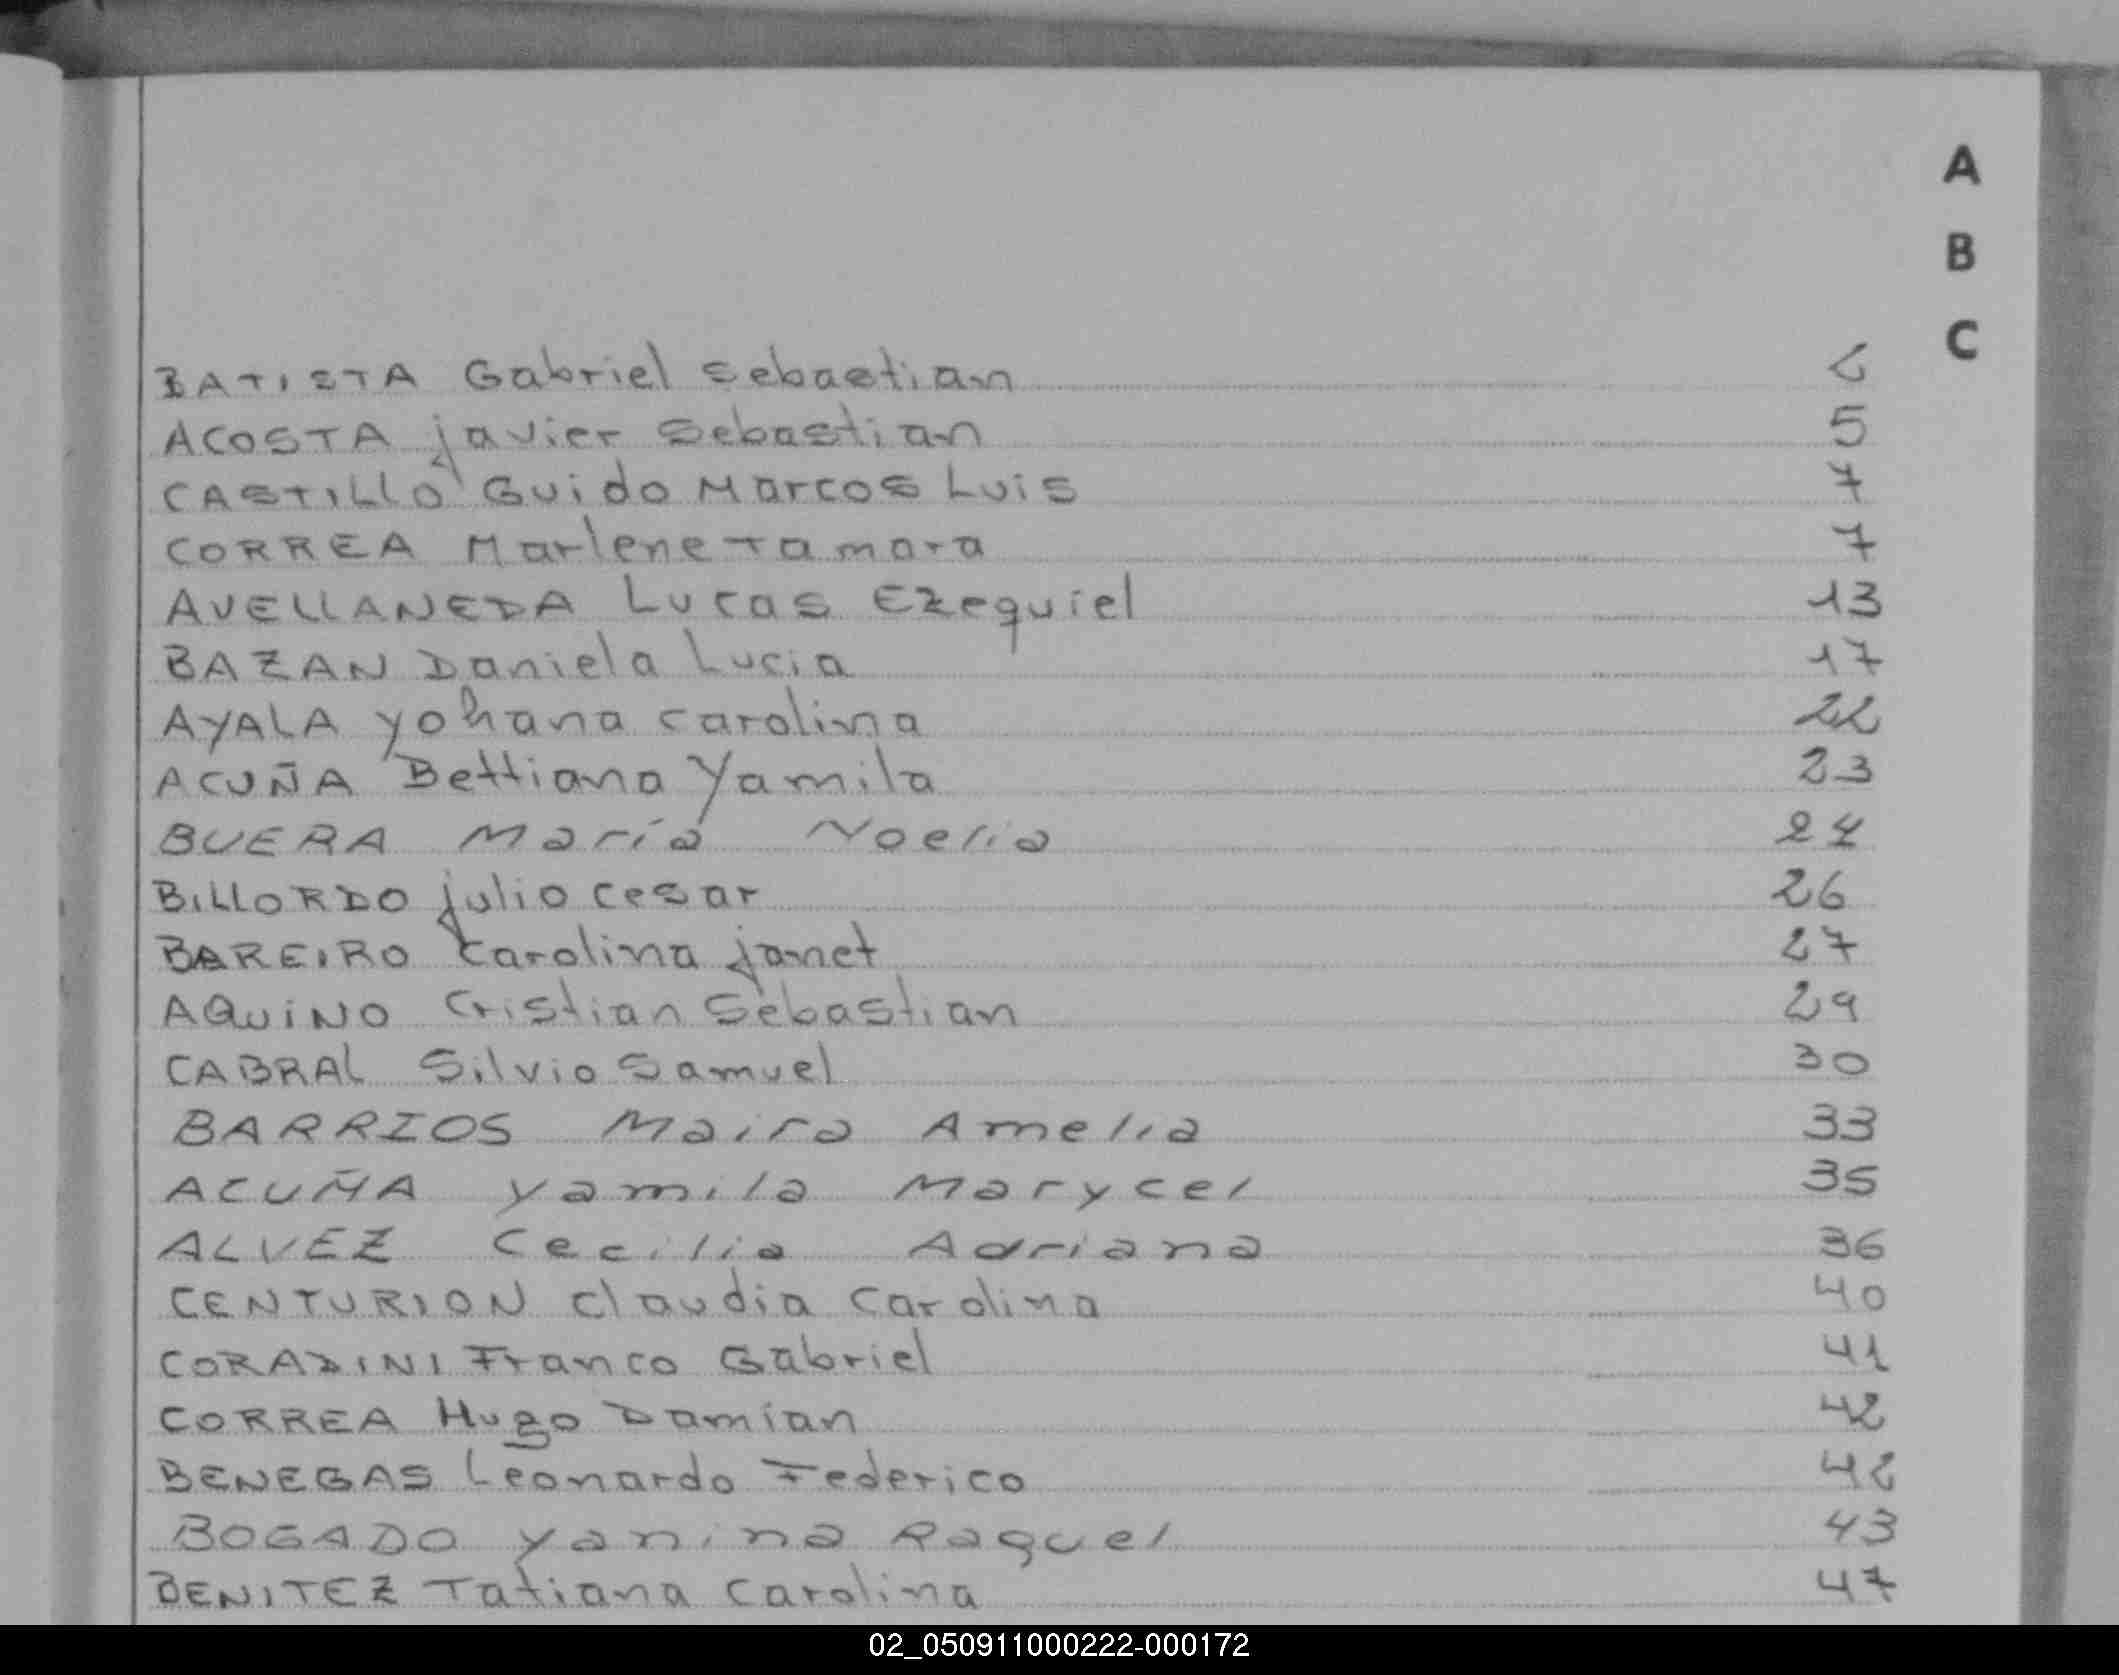 A
B
C
BATISTA Gabriel Sebastian 2
ACOSTA javier Sebastian 5
CASTILLO Guido Marcos Luis 7
CORREA Marlene Tamara 7
AVELLANEDA Lucas Ezequiel 13
BAZAN Daniela Lucia 17
AYALA yohana carolina 22
ACUÑA Bettiana Yamila 23
BUERA María Noelia 24
BILLORDO julio cesar 26
BAREIRO carolina janet 27
AQuiNO Cristian Sebastian 29
CABRAL Silvio Samuel 30
BARRIOS Maira Amelia 33
ACUÑA yamila Marycel 35
ALVEZ Cecilia Adriana 36
CENTURION claudia carolina 40
CORADINI Franco Gabriel 41
CORREA Hugo Damian 42
BENEGAS Leonardo Federico 42
BOGADO yanina Raquel 43
BENITEZ Tatiana carolina 47
02_050911000222-000172